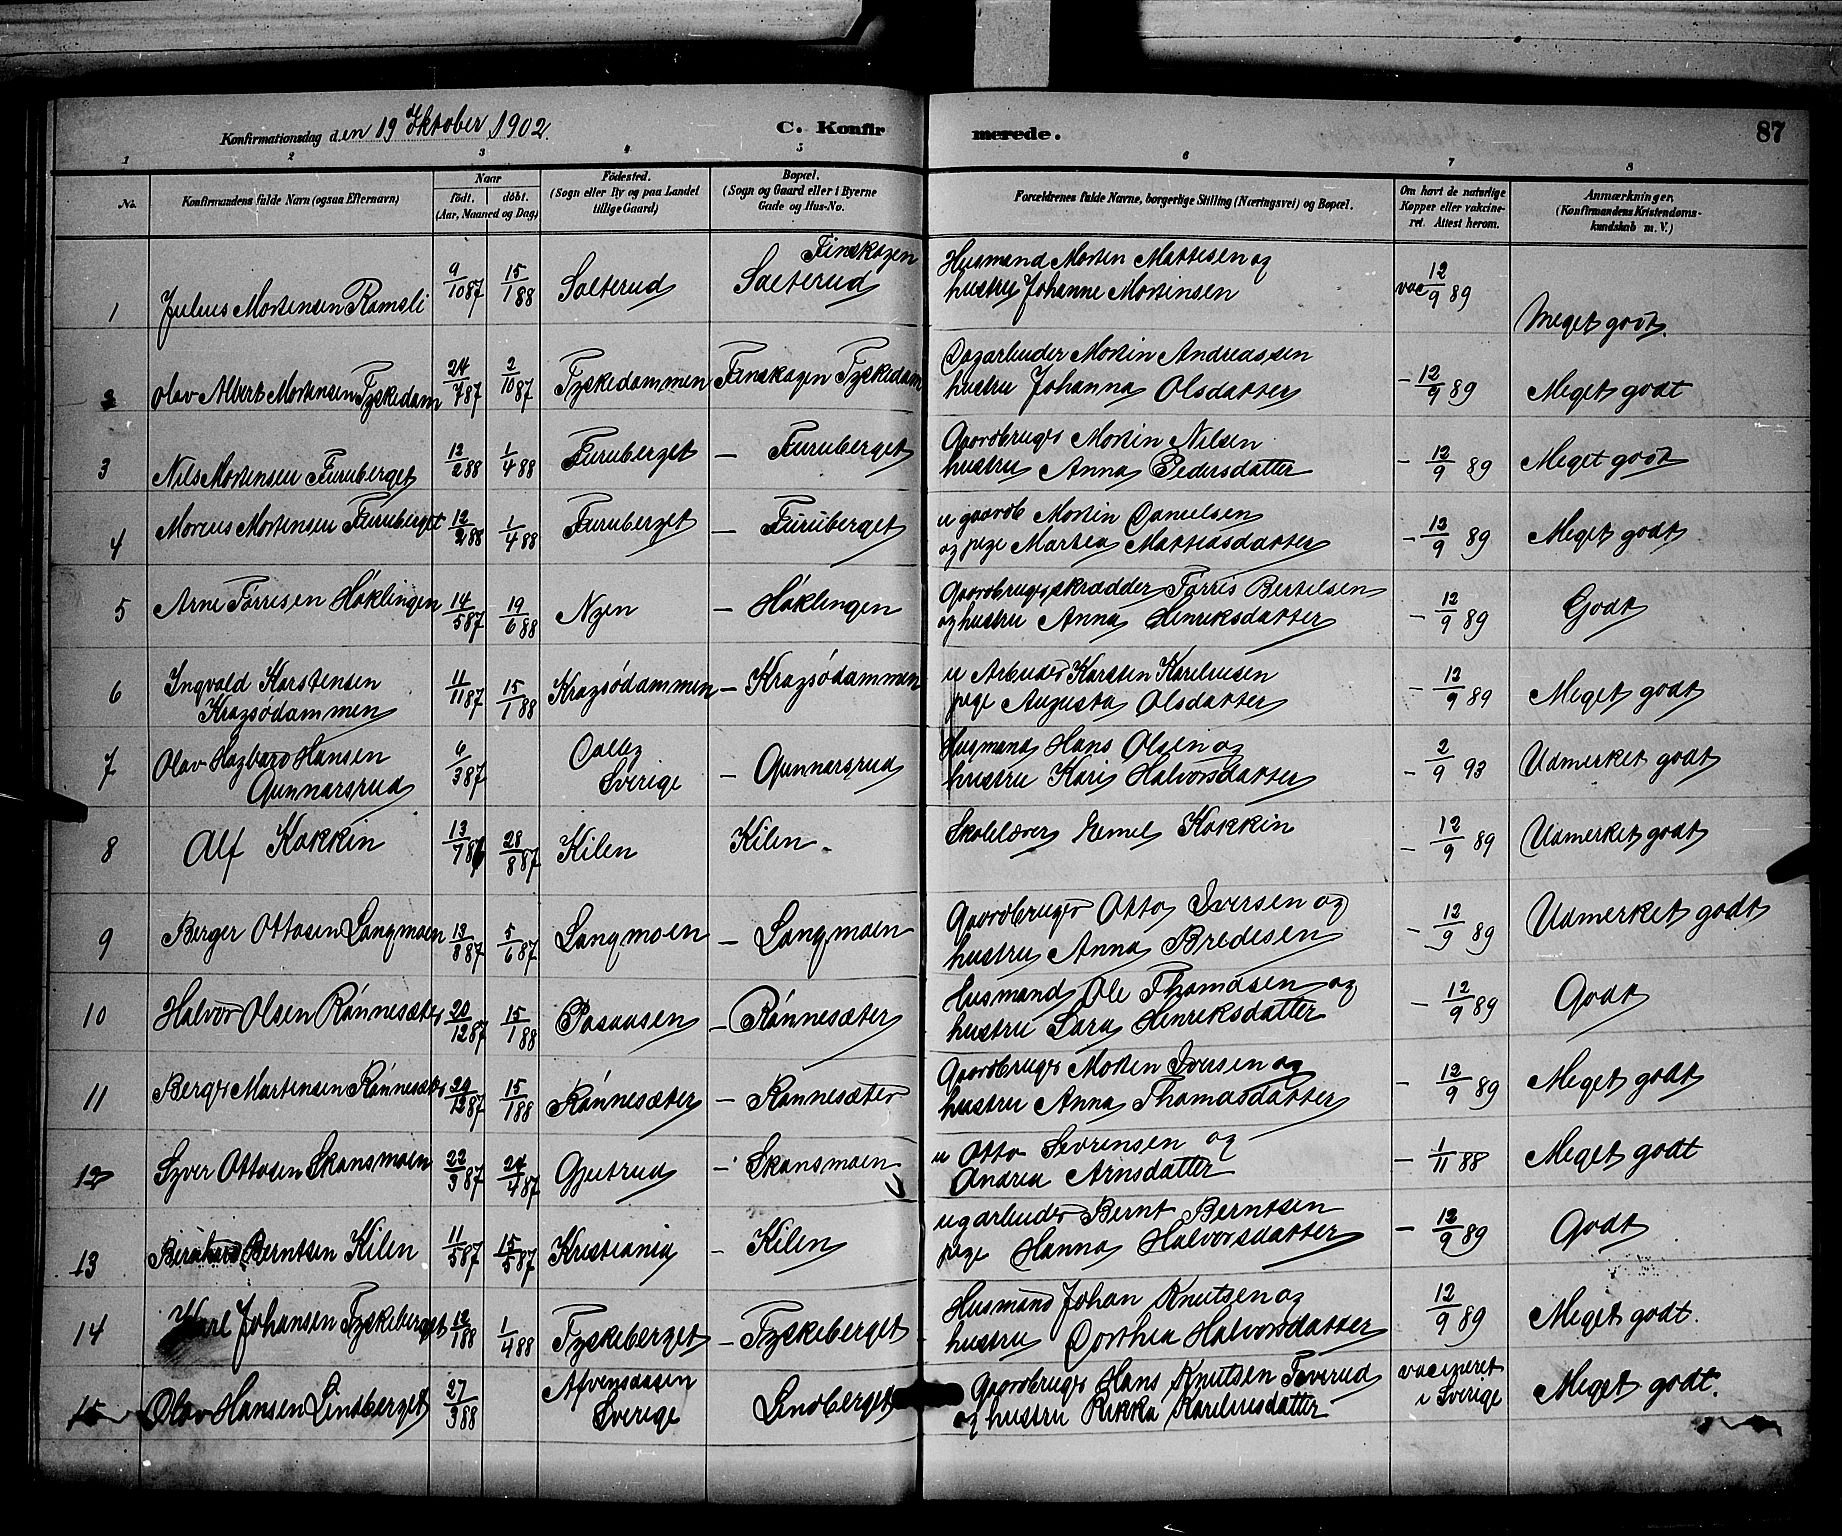 Konfirmationsdag den 19 Oktober 1902. C. Konfir merede. 87
1 2 3 4 5 6 7 8
No. Konfirmandens fulde Navn (ogsaa Efternavn) Naar født. døbt. (Aar, Maaned og Dag) Fødested. (Sogn eller By og paa Landet tillige Gaard) Bopæl. (Sogn og Gaard eller i Byerne Gade og Hus-No. Forældrenes fulde Navne, borgerlige Stilling (Næringsvei) og Bopæl. Om havt de naturlige Kopper eller vakcineret. Attest herom. Anmærkninger. (Konfirmandens Kristendomskundskab m. V.)
1 Julius Mortensen Ramsli 9/10 87 15/1 88 Sæterud Finskogen Sæterud Husmand Morten Mattesen og
hustru Johanne Mortinsen vac 12/9 89 Meget godt.
2 Olav Albert Mortensen Tyskedam 24/7 87 2/10 87 Tyskedammen Finskogen Tyskedam Dagarbeider Mortin Andreassen
hustru Johanna Olsdatter - 12/9 89 Meget godt
3 Nils Mortensen Furuberget 12/2 88 1/4 88 Furuberget - Furuberget Gaardbruger Mortin Nilsen
hustru Anna Pedersdatter - 12/9 89 Meget godt
4 Morens Mortensen Furuberget 12/2 88 1/4 88 Furuberget - Furuberget u gaardb Mortin Danielsen
og pige Martea Matteasdatter - 12/9 89 Meget godt
5 Arne Tørresen Høklingen 14/5 87 19/6 88 Nyen - Høklingen Gaardbruger, skrædder Tørris Bertelsen
og hustru Anna Henriksdatter - 12/9 89 Godt
6 Ingvald Karstensen 11/11 87 15/1 88 Kragsødammen - Kragsødammen u Arbeider Karsten Kareliusen
Kragsødammen pige Augusta Olsdatter - 12/9 89 Meget godt
7 Olav Hagbard Hansen 6/3 87 Dalby - Gunnarsrud Husmand Hans Olsen og
Gunnarsrud Sverige hustru Kari Halvorsdatter - 2/9 93 Udmerket godt
8 Alf Kokkin 13/7 87 28/8 87 Kilen Kilen - Skolelærer Emel Kokkin - 12/9 89 Udmerket godt
9 Berger Ottosen Langmoen 13/3 87 5/6 87 Langmoen - Langmoen Gaardbruger Otto Iversen og
hustru Anna Bredesen - 12/9 89 Udmerket godt
10 Halvor Olsen Rønnesæter 20/12 87 15/1 88 Posaasen - Rønnesæter Husmand Ole Thomasen og
hustru Sara Henriksdatter - 12/9 89 Godt
11 Berger Martensen Rønnesæter 29/12 87 15/1 88 Rønnesæter - Rønnesæter Gaardbruger Morten Iversen og
hustru Anna Thomasdatter - 12/9 89 Meget godt
12 Syver Ottosen Skansmoen 22/3 87 24/4 87 Gjetrud - Skansmoen u Otto Sevrensen og
Andrea Arnsdatter - 1/11 88 Meget godt
13 Berntsen Kilen 11/5 87 15/5 87 Kristiania - Kilen ugarbeider Bernt Berntsen
pige Hanna Halvorsdatter - 12/9 89 Godt
14 Karl Johansen Tyskeberget 12/1 88 1/4 88 Tyskeberget - Tyskeberget Husmand Johan Knutsen og
hustru Dorthea Halvorsdatter 12/9 89 Meget godt.
15 Olav Hansen Lindberget 27/3 88 Afvensaasen Sverige Lindberget Gaardbruger Hans Knutsen Teverud
og hustru Rikka Kareliusdatter vacineret i Sverige Meget godt.